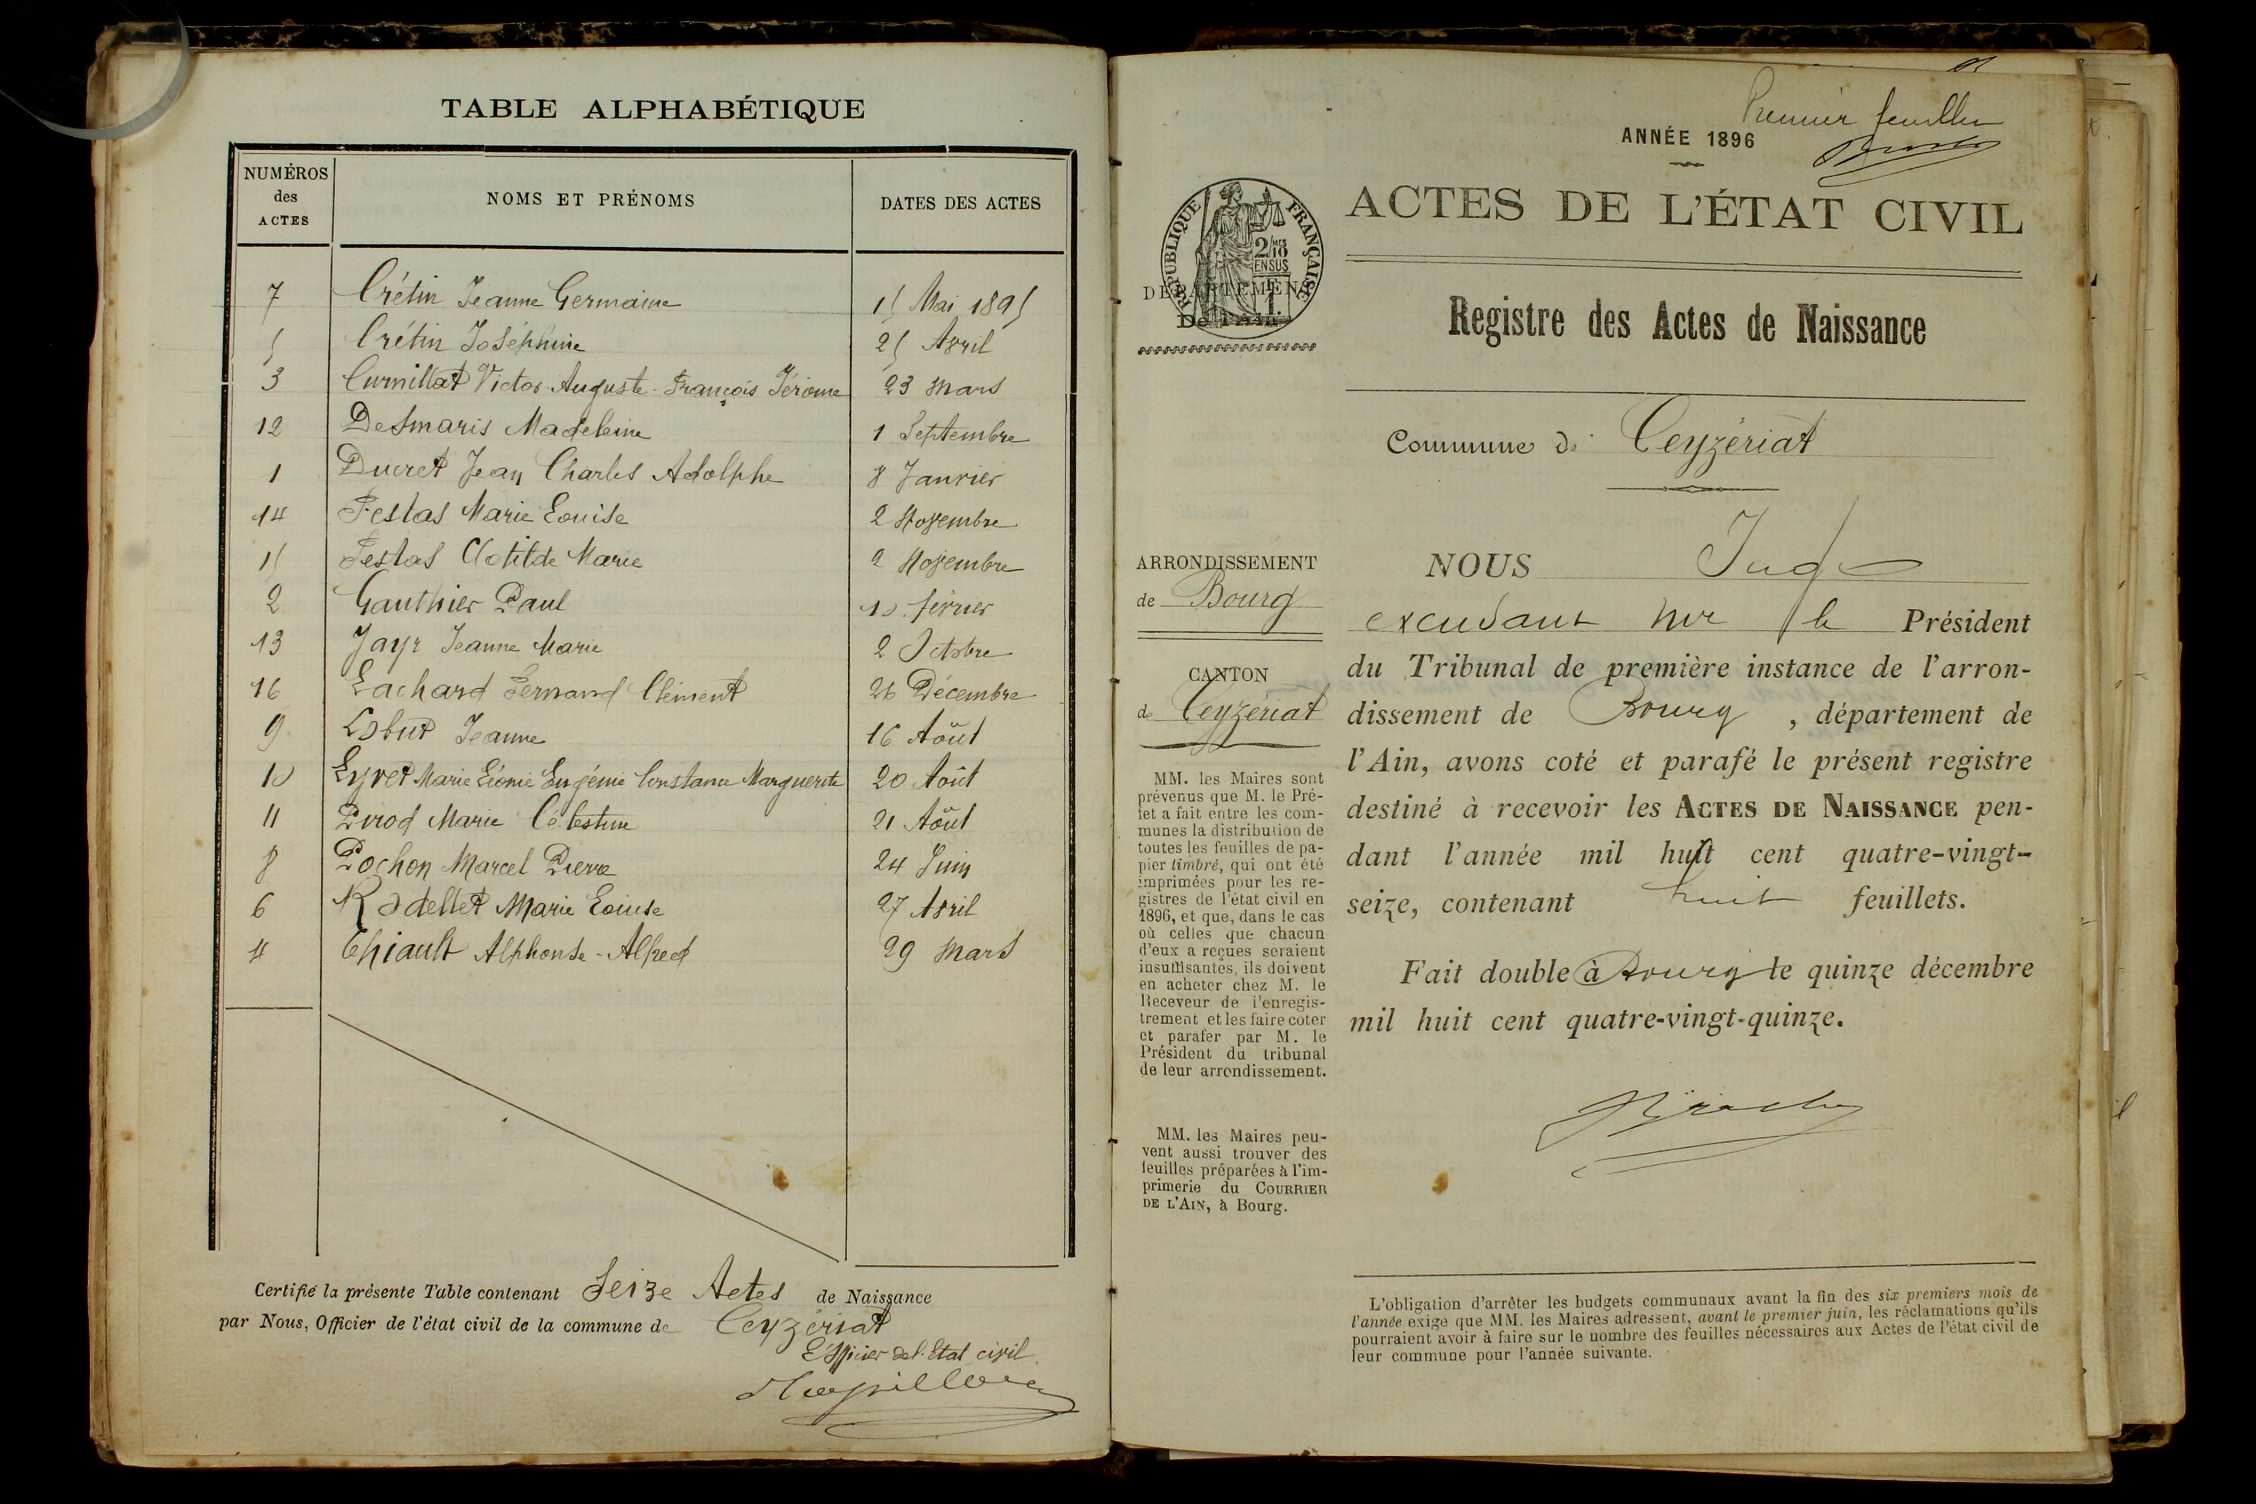 TABLE ALPHABÉTIQUE
NUMÉROS des ACTES
NOMS ET PRÉNOMS
DATES DES ACTES
7 Crétin Jeanne Germaine 15 Mai 1895
5 Crétin Joséphine 25 Avril
3 Curnillat Victor-Auguste-François Jériome 23 Mars
12 Desmaris Madeleine 1 Septembre
1 Ducret Jean Charles Adolphe 8 Janvier
14 Festas Marie Louise 2 Novembre
15 Festas Clotilde Marie 2 Novembre
2 Gauthier Paul 10 février
13 Jayr Jeanne Marie 2 Octobre
16 Lachard Fernand Clément 26 Décembre
9 Lobut Jeanne 16 Août
10 Lyvet Marie Léonie Eugénie Constance Marguerite 20 Août
11 Pirod Marie Célestine 21 Août
8 Pochon Marcel Pierre 24 Juin
6 Rodellet Marie Louise 27 Avril
4 Thiault Alphonse-Alfred 29 Mars
Certifié la présente Table contenant Seize Actes de Naissance
par Nous, Officier de l'état civil de la commune de Ceyzériat
L'Officier de l'Etat civil
Premier feuillet
ANNÉE 1896
ACTES DE L'ÉTAT CIVIL
RÉPUBLIQUE FRANÇAISE
DÉPARTEMENT
De l'Ain
Registre des Actes de Naissance
Commune de Ceyzériat
ARRONDISSEMENT
de Bourg
CANTON
de Ceyzériat
MM. les Maires sont
prévenus que M. le Pré-
fet a fait entre les com-
munes la distribution de
toutes les feuilles de pa-
pier timbré, qui ont été
imprimées pour les re-
gistres de l'état civil en
1896, et que, dans le cas
où celles que chacun
d'eux a reçues seraient
insuffisantes, ils doivent
en acheter chez M. le
Receveur de l'enregis-
trement et les faire coter
et parafer par M. le
Président du tribunal
de leur arrondissement.
MM. les Maires peu-
vent aussi trouver des
feuilles préparées à l'im-
primerie du COURRIER
DE L'AIN, à Bourg.
NOUS Juge
excudant Mr le Président
du Tribunal de première instance de l'arron-
dissement de Bourg, département de
l'Ain, avons coté et parafé le présent registre
destiné à recevoir les ACTES DE NAISSANCE pen-
dant l'année mil huit cent quatre-vingt-
seize, contenant huit feuillets.
Fait double à Bourg le quinze décembre
mil huit cent quatre-vingt-quinze.
L'obligation d'arrêter les budgets communaux avant la fin des six premiers mois de
l'année exige que MM. les Maires adressent, avant le premier juin, les réclamations qu'ils
pourraient avoir à faire sur le nombre des feuilles nécessaires aux Actes de l'état civil de
leur commune pour l'année suivante.